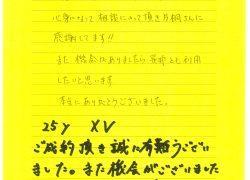 心身になって相談にのって頂き片桐さんに
感謝してます!!
また機会がありましたら是非とも利用
したいと思います
本当にありがとうございました。
25y XV
ご成約頂き誠に有難うござい
ました。また機会がございました